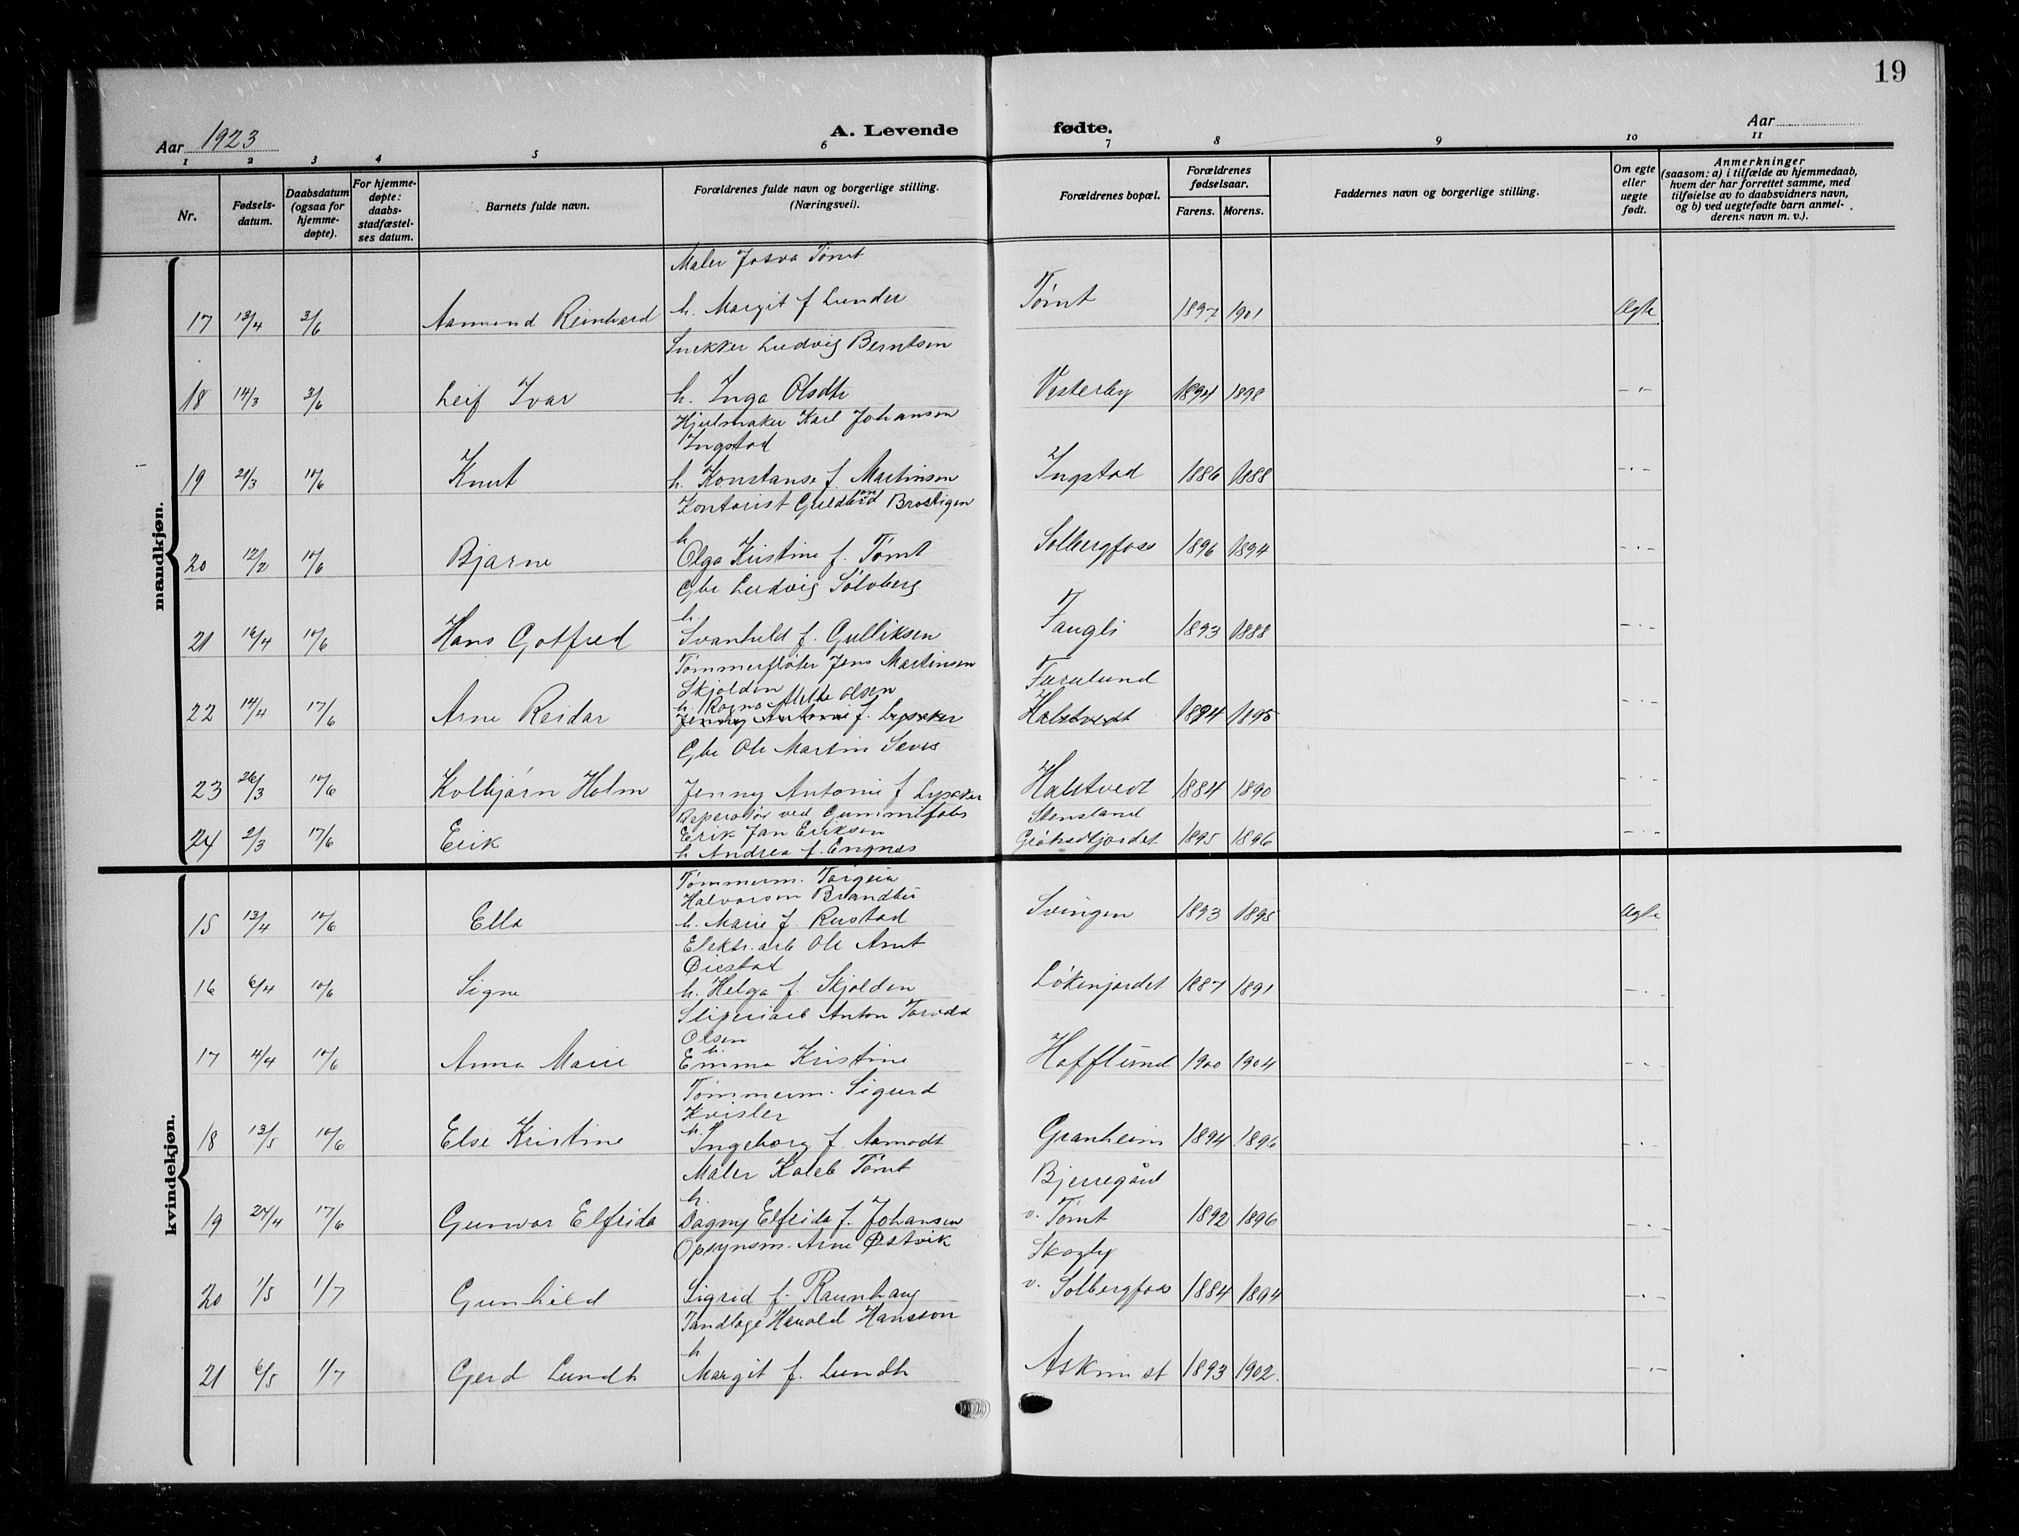 19
Aar 1923
A. Levende fødte.
Aar
1 2 3 4 5 6 7 8 9 10 11
Nr.
Fødsels-
datum.
Daabsdatum
(ogsaa for
hjemme-
døpte).
For hjemme-
døpte:
daabs-
stadfæstel-
ses datum.
Barnets fulde navn.
Forældrenes fulde navn og borgerlige stilling.
(Næringsvei).
Forældrenes bopæl.
Forældrenes
fødselsaar.
Farens. Morens.
Faddernes navn og borgerlige stilling.
Om egte
eller
uegte
født.
Anmerkninger
(saasom: a) i tilfælde av hjemmedaab,
hvem der har forrettet samme, med
tilføielse av to daabsvidners navn,
og b) ved uegtefødte barn anmel-
derens navn m. v.).
mandkjøn.
Maler Josva Tømt
17 13/4 3/6 Aamund Reinhard h. Margit f Lunder Tømt 1897 1901 Ægte
Snekker Ludvig Berntsen
18 14/3 3/6 Leif Ivar h. Inga Olsdtr Vesterby 1894 1898 -"-
Hjulmaker Karl Johansen
Ingstad
19 21/3 10/6 Knut h. Konstanse f. Martinsen Ingstad 1886 1888 -"-
Kontorist Guldbrand Brostigen
h
20 12/2 10/6 Bjarne Olga Kristine f. Tømt Solbergfoss 1896 1894 -"-
Gbr Ludvig Sølvberg
h.
21 16/4 10/6 Hans Gotfred Svanhild f. Gulliksen Fangli 1893 1888 -"-
Tømmerfløter Jens Martinsen
Skjolden Furulund
h. Ragna Alette Olsen
22 14/4 17/6 Arne Reidar Jenny Antonie f. Lysaker Halstvedt 1894 1895 -"-
Gbr Ole Martin Sævis
23 26/3 10/6 Kolbjørn Holm Jenny Antonie f Lysaker Halstvedt 1884 1890 -"-
Reperatør ved Gummifabr Stensland
24 2/3 17/6 Erik Erik Jan Eriksen Grøtvedtjordet 1895 1896 -"-
h Andrea f. Engnæs
kvindekjøn.
Tømmerm. Torgeir
Halvorsen Brandbu
15 13/4 10/6 Ella h. Marie f. Rustad Svingen 1893 1895 Ægte
Elektr. arb Ole Arnt
Øiestad
16 6/4 10/6 Signe h. Helga f. Skjolden Løkenjordet 1887 1891 -"-
Sliperiarb Anton Torvald
Olsen
h.
17 4/4 10/6 Anna Marie Emma Kristine Hafslund 1900 1904 -"-
Tømmerm. Sigurd
Kvisler
h.
18 13/5 10/6 Else Kristine Ingeborg f. Aamodt Granheim 1894 1896 -"-
Maler Kaleb Tømt Bjerregård
h.
19 24/4 17/6 Gunvor Elfrida Dagny Elfrida f. Johansen v. Tømt 1892 1896 -"-
Opsynsm. Arne Østvik Skogly
20 1/5 1/7 Gunhild Sigrid f. Raunhaug v. Solbergfoss 1884 1894 -"-
Tandlæge Harald Hansson
h
21 6/5 1/7 Gerd Lundh Margit f. Lundh Askim st 1893 1902. -"-